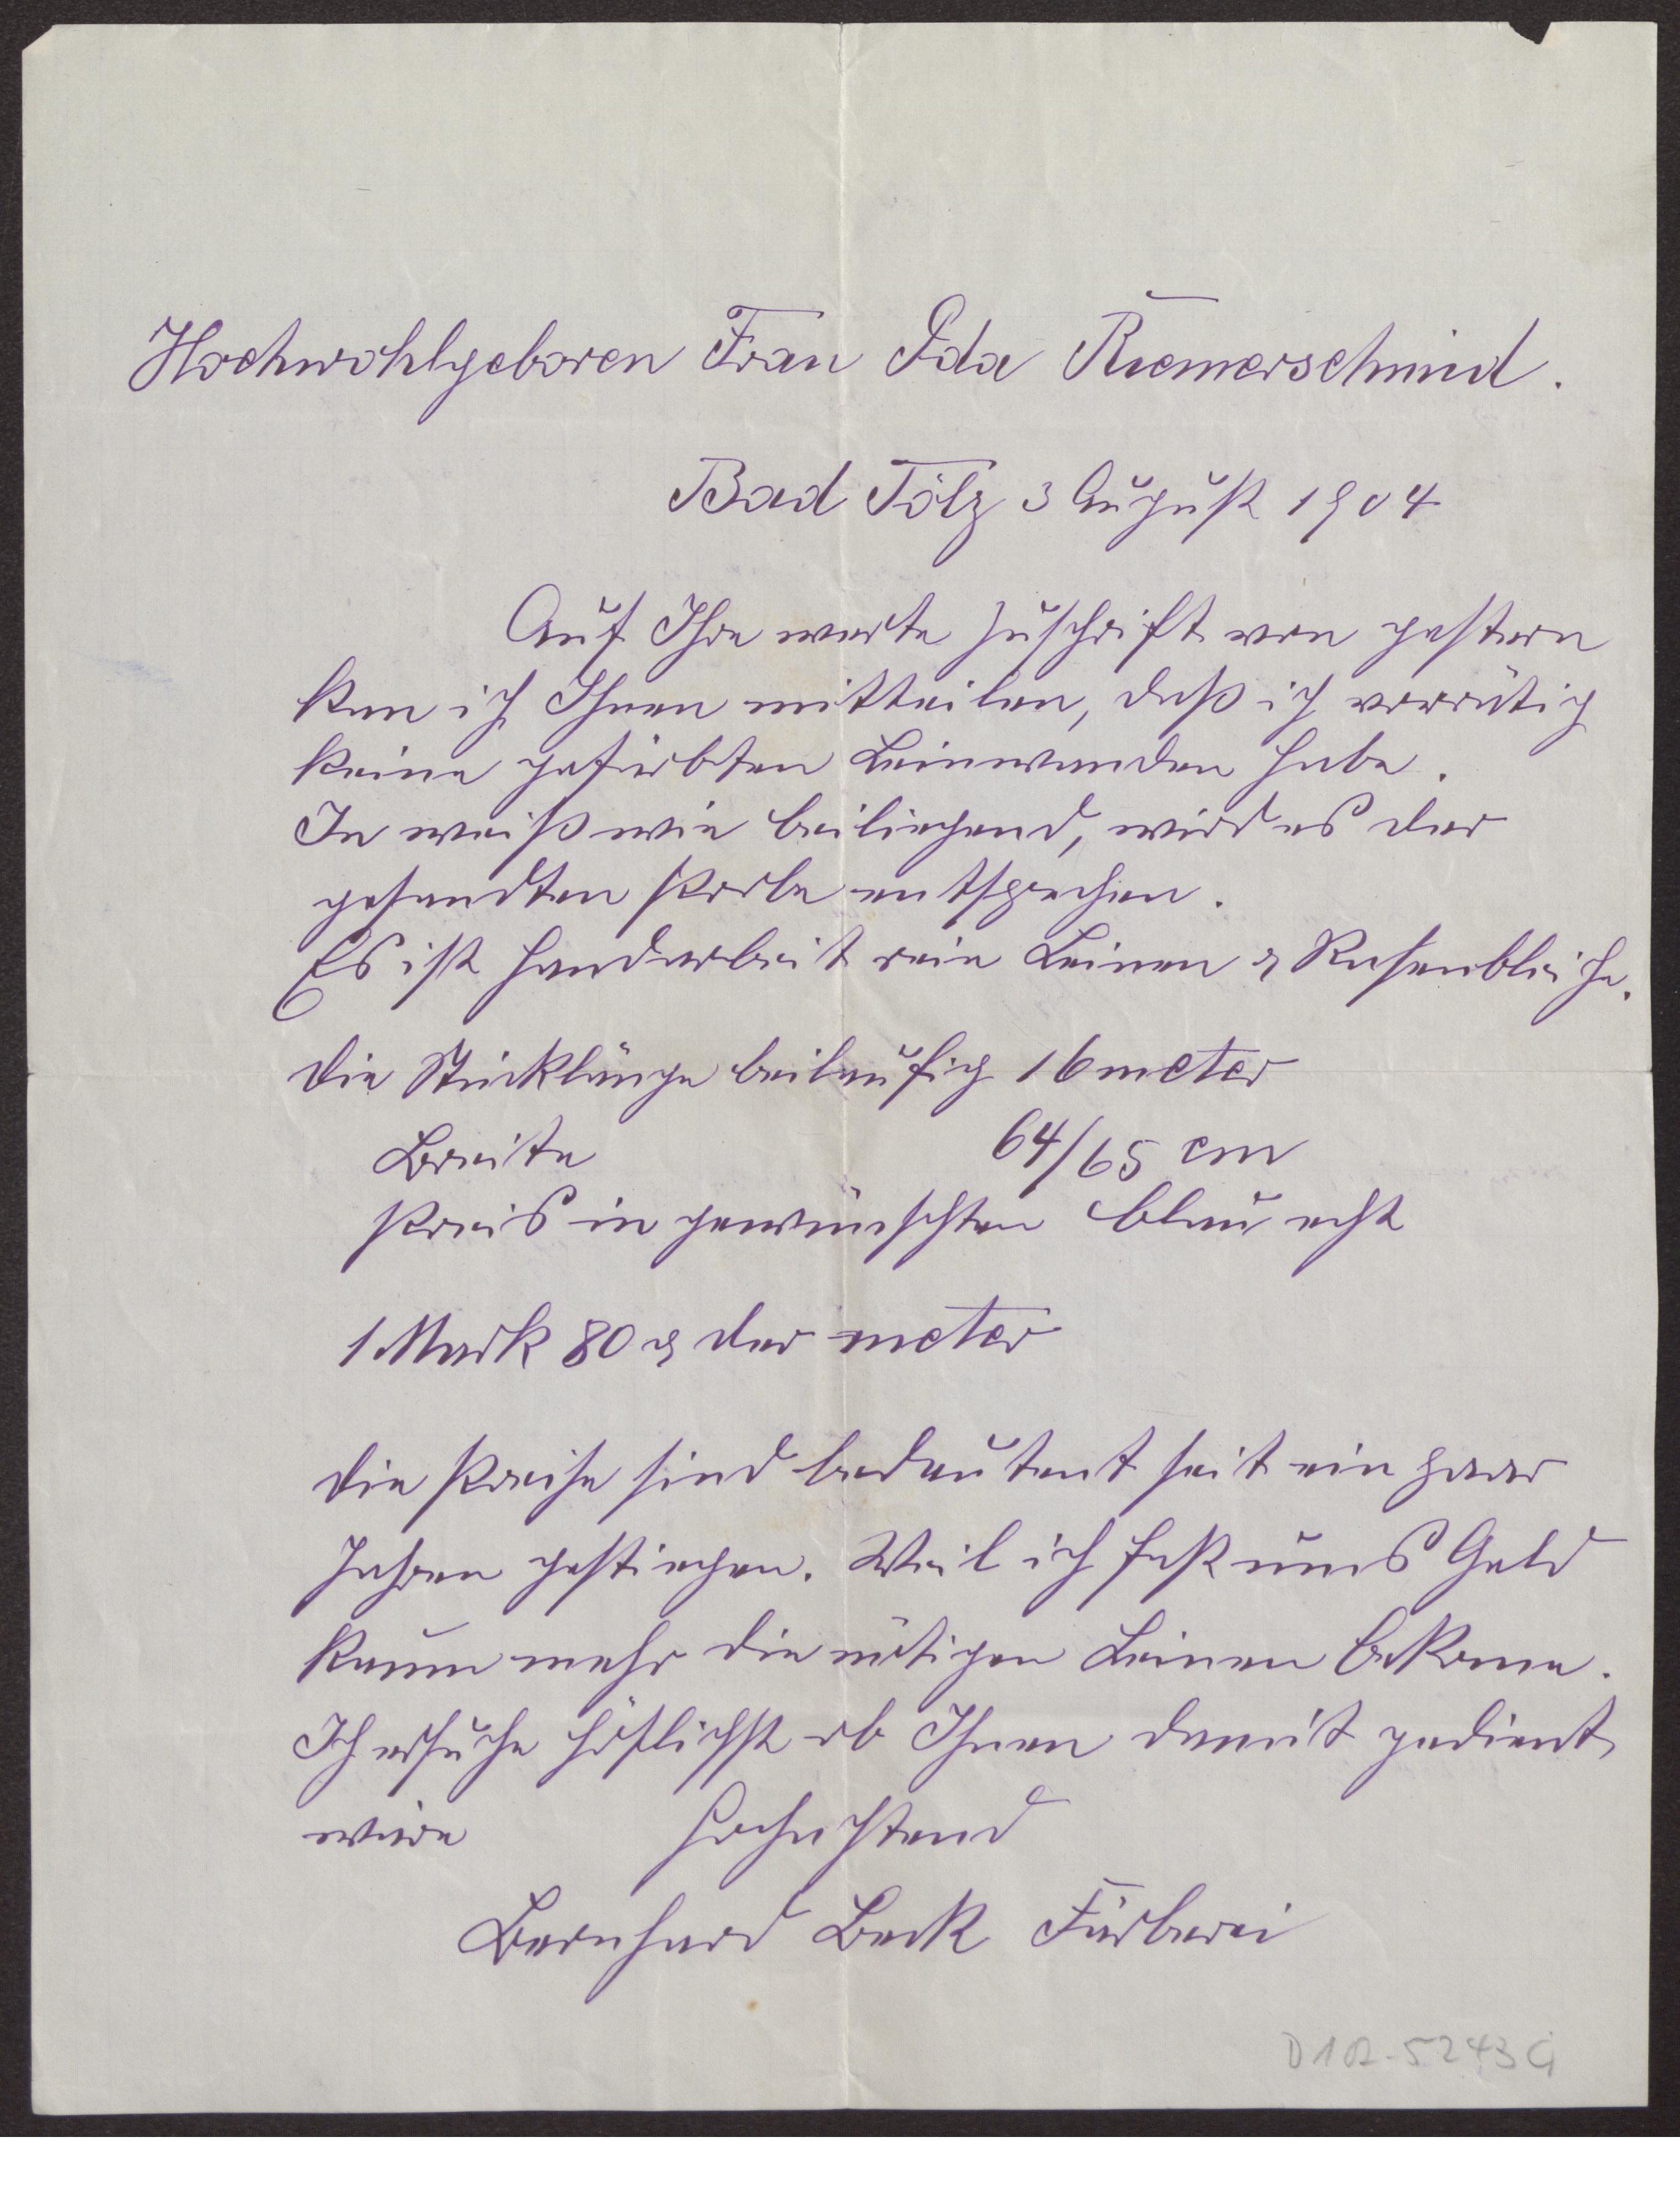 Hochwohlgeboren Frau Ida Riemerschmid.
Bad Tölz 3 August 1904
Auf Ihre werte Zuschrift von gestern
kan ich Ihnen mitteilen, daß ich vorrätig
keine gefärbten Leinwanden habe.
In weiß wie beiliegend, wird es der
gesandten Probe entsprechen.
Es ist Handarbeit rein Leinen & Rasenbleiche.
Die Stücklänge beiläufig 16 meter
Breite 64/65 cm
Preis in gewünschten blau echt
1 Mark 80 ₰ der meter
Die Preise sind bedeutent seit ein paar
Jahren gestiegen. Weil ich fast ums Geld
kaum mehr die nötigen Leinen bekome.
Ich ersuche höflichst ob Ihnen damit gedient
wäre Hochachtend
Bernhard Beck Färberei
D102-5243 G